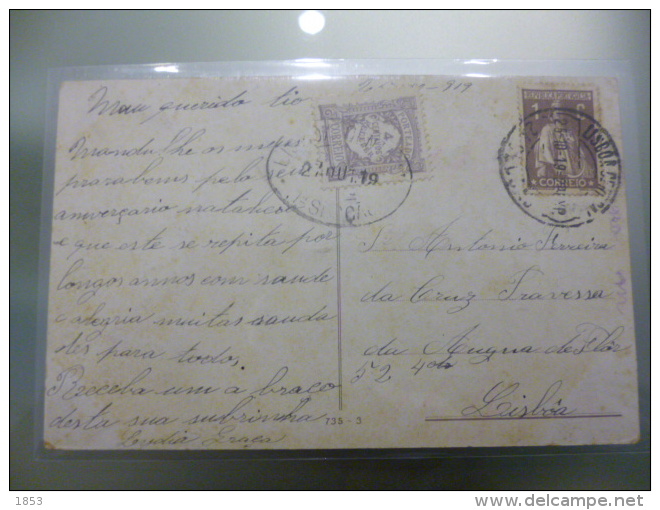 Lisboa - 919
Meu querido tio
Mando-lhe os meus
parabens pelo seu
aniverçario natalicio
e que este se repita por
longos annos com saude
e alegria muitas sauda
des para todos,
Receba um a braço
desta sua subrinha
Graça
PORTUGAL
2 OUT 19
CORREIO
LISBOA
Sr. Antonio Pereira
da Cruz Travessa
da Augua de Flôr
52 4º
Lisbôa
735 - 3
1853
delcampe.net